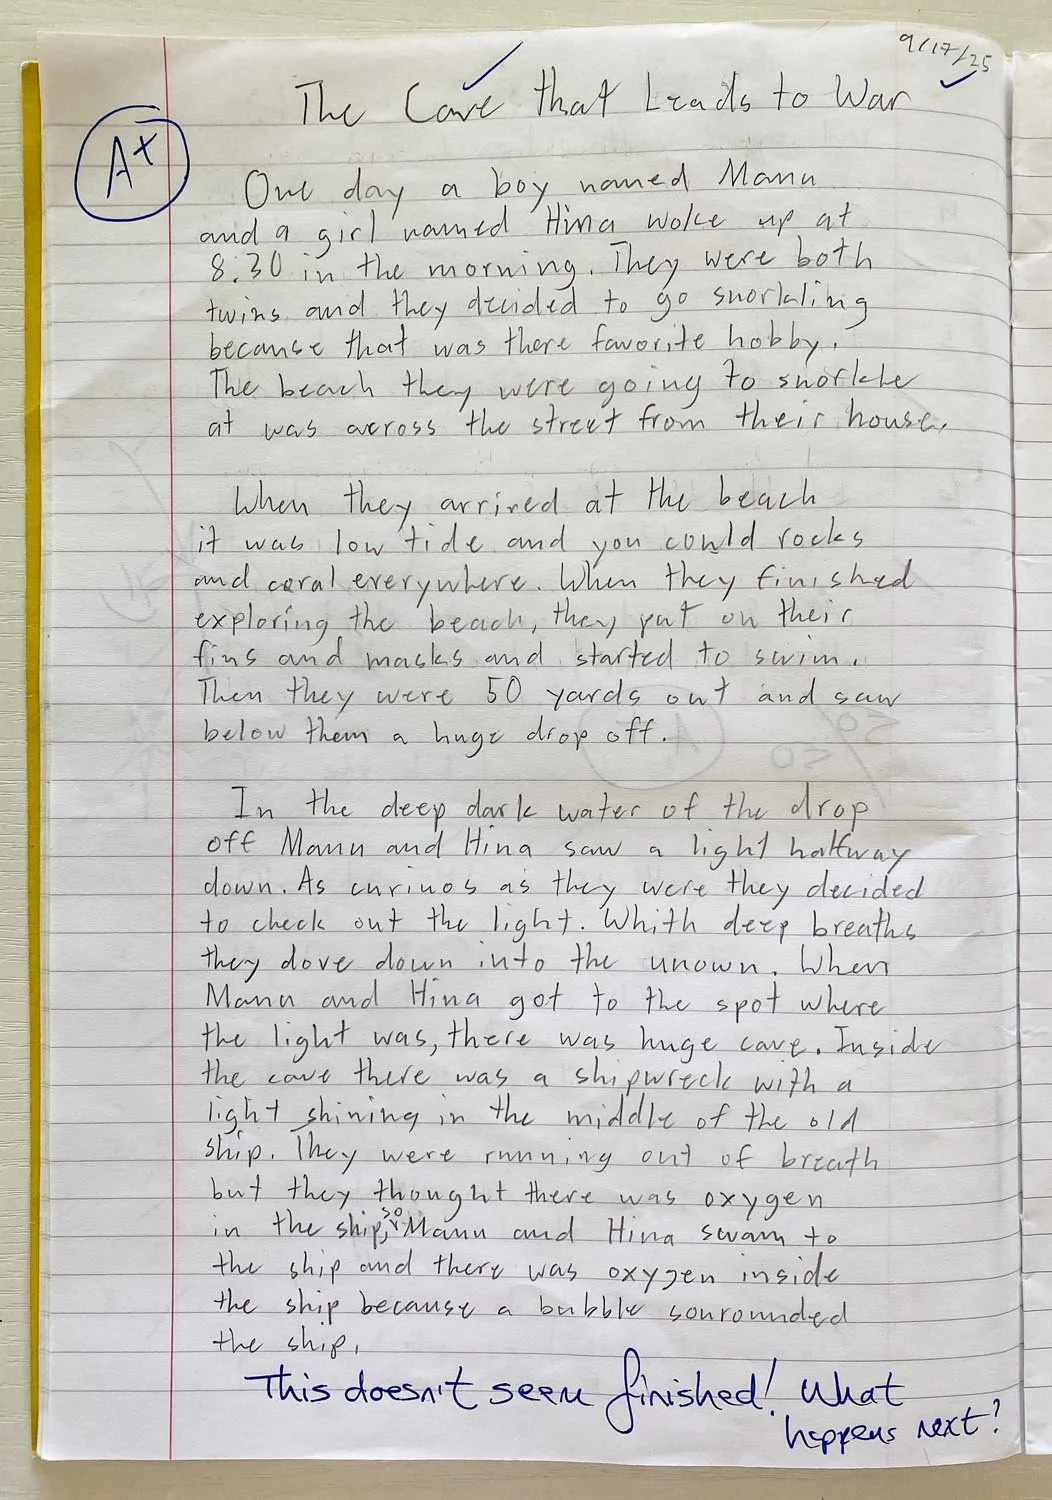 9/17/25
The Cave that Leads to War
A+
One day a boy named Manu
and a girl named Hina woke up at
8:30 in the morning. They were both
twins and they decided to go snorkling
because that was there favorite hobby.
The beach they were going to snorkle
at was across the street from their house.
When they arrived at the beach
it was low tide and you could rocks
and coral everywhere. When they finished
exploring the beach, they put on their
fins and masks and started to swim.
Then they were 50 yards out and saw
below them a huge drop off.
In the deep dark water of the drop
off Manu and Hina saw a light halfway
down. As curinos as they were they decided
to check out the light. Whith deep breaths
they dove down into the unown. When
Manu and Hina got to the spot where
the light was, there was huge cave. Inside
the cave there was a shipwreck with a
light shining in the middle of the old
ship. They were running out of breath
but they thought there was oxygen
in the ship, so Manu and Hina swam to
the ship and there was oxygen inside
the ship because a bubble sourounded
the ship.
This doesn't seem finished! What
happens next?